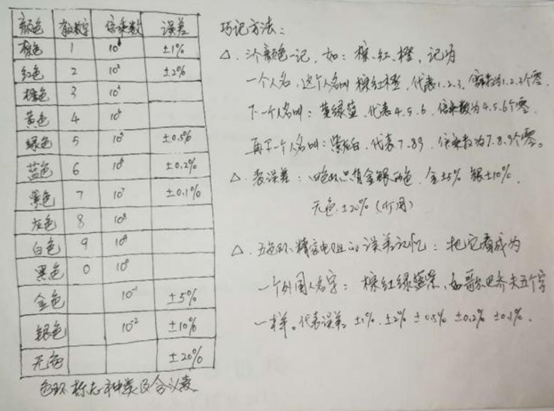 颜色 有效数字 倍乘数 误差
棕色 1 10¹ ±1%
红色 2 10² ±2%
橙色 3 10³
黄色 4 10⁴
绿色 5 10⁵ ±0.5%
蓝色 6 10⁶ ±0.2%
紫色 7 10⁷ ±0.1%
灰色 8 10⁸
白色 9 10⁹
黑色 0 10⁰
金色 10⁻¹ ±5%
银色 10⁻² ±10%
无色 ±20%
色环标志种类及含义表
巧记方法:
△、颜色一记,如:棕、红、橙,记为
一个人名,这个人名叫棕红橙,代表1.2.3,倍乘数为1.2.3个零
下一个人名叫:黄绿蓝,代表4.5.6,倍乘数为4.5.6个零
再下一个人名叫:紫灰白,代表7.8.9,倍乘数为7.8.9个零。
△、表误差:色环只有金银色,金±5% 银±10%
无色±20%
△、五色环精密电阻的误差记忆:把它看成为
一个外国人名字:棕红绿蓝紫,五个字
一样。代表误差±1% ±2% ±0.5% ±0.2% ±0.1%